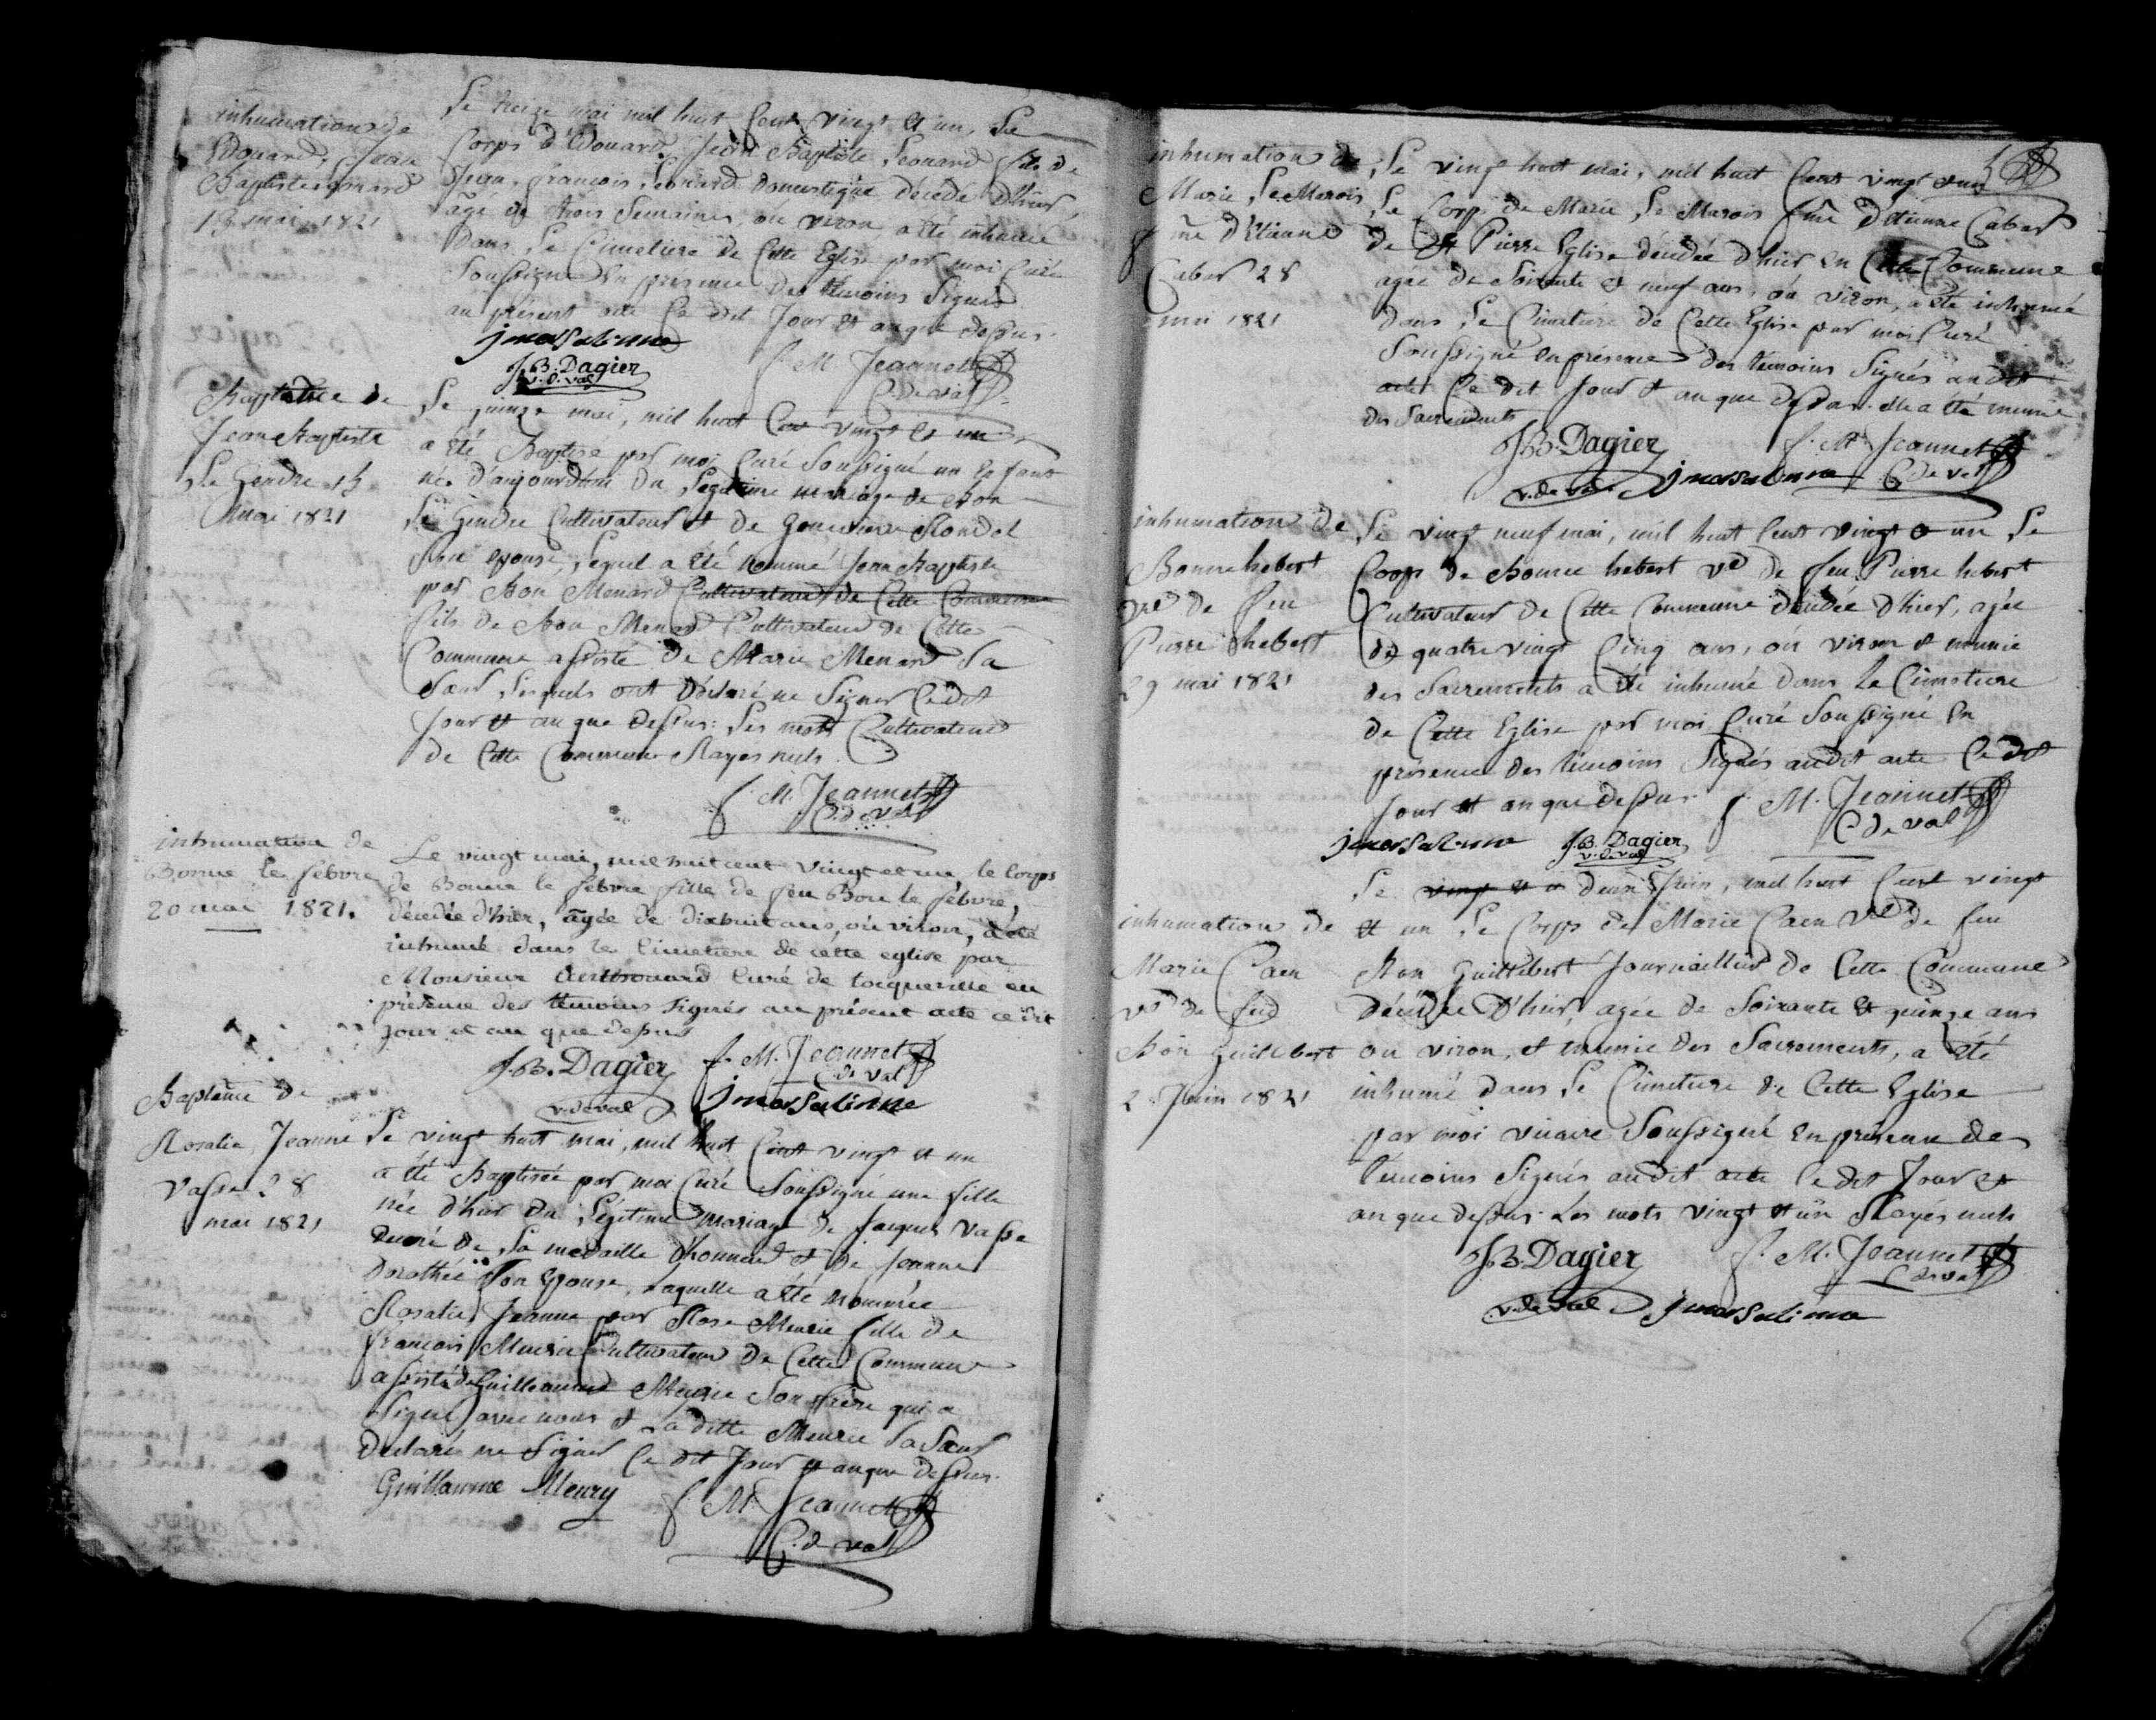 inhumation de
Edouard, Jean
Baptiste Léonard
13 mai 1821
Le treize mai mil huit Cent vingt et un, Le
Corps d'Edouard Jean Baptiste Leonard fils de
Jean françois Leonard domestique décédé d'hier,
agé de trois Semaines ou viron a été inhumé
dans Le Cimetiere de Cette Eglise par moi Curé
Soussigné en présence des témoins Signés
au présent acte Ce dit Jour et an que dessus.
J.B. Dagier
v. d. val
f. M. Jeannet
C. de val
Baptême de
Jean Baptiste
Le Gendre 15
mai 1821
Le quinze mai, mil huit Cent vingt et un,
a été Baptisé par moi Curé Soussigné un Enfant
né d'aujourd'hui du Legitime mariage de Bon
Le Gendre Cultivateur et de Genevieve Blondel
Son epouse, Lequel a été nommé Jean Baptiste
par Bon Menard Cultivateur de Cette Commune
fils de Bon Menard Cultivateur de Cette
Commune assisté de Marie Menard Sa
Sœur, Lesquels ont déclaré ne Signer Ce dit
Jour et an que dessus: Les mots Cultivateur
de Cette Commune Rayes nuls
f. M. Jeannet
C. d. val
inhumation de
Bonne le febvre
20 mai 1821.
Le vingt mai, mil huit cent vingt et un, le Corps
de Bonne le febvre fille de feu Bon le febvre,
décédée d'hier, agée de dixhuit ans, où viron, a été
inhumé dans le Cimetiere de cette eglise par
Monsieur Curé de tocqueville en
présence des témoins Signés au présent acte ce dit
Jour et an que dessus
J.B. Dagier
v. de val
f. M. Jeannet
C. de val
Baptême de
Rosalie Jeanne
Vasse 28
mai 1821
Le vingt huit mai, mil huit Cent vingt et un
a été Baptisée par moi Curé Soussigné une fille
née d'hier du Légitime mariage de Jacques Vasse
Decoré de La medaille d'honneur et de Jeanne
Dorothée Son Epouse, Laquelle a été nommée
Rosalie Jeanne par Rose Meurie fille de
françois Meurie Cultivateur de Cette Commune
assisté de Guillaume Meurie Son frère qui a
Signé avec nous et La ditte Meurie Sa Sœur
Declaré ne Signer Ce dit Jour et an que dessus.
Guillaume Meury
f. M. Jeannet
C. d. val
inhumation de
Marie Le Marois
fme d'Etienne
Cabart 28
mai 1821
Le vingt huit mai, mil huit Cent vingt et un
Le Corps de Marie Le Marois fme d'Etienne Cabart
de St Pierre Eglise décédée d'hier en Cette Commune
agée de Soixante et neuf ans, ou viron, a été inhumé
dans Le Cimetiere de Cette Eglise par moi Curé
Soussigné en présence des témoins Signés audit
acte Ce dit Jour et an que dessus. Elle a été munie
des Sacrements
J.B. Dagier
v. de val
f. M. Jeannet
C. de val
inhumation de
Bonne hebert
vve de feu
Pierre hebert
29 mai 1821
Le vingt neuf mai, mil huit Cent vingt et un Le
Corps de Bonne hebert Ve de feu Pierre hebert
Cultivateur de Cette Commune décédée d'hier, agée
de quatre vingt Cinq ans, où viron et munie
des Sacrements a été inhumé dans Le Cimetiere
de Cette Eglise par moi Curé Soussigné En
présence des témoins Signés audit acte Ce dit
Jour et an que dessus.
f. M. Jeannet
C. de val
J.B. Dagier
v. d. val
inhumation de
Marie Caen
ve de feu
Bon Guillebert
2 Juin 1821
Le vingt et u deux Juin, mil huit Cent vingt
et un Le Corps de Marie Caen Ve de feu
Bon Guillebert Journaillier de Cette Commune
décédée d'hier, agée de Soixante et quinze ans
ou viron, et munie des Sacrements, a été
inhumé dans Le Cimetiere de Cette Eglise
par moi vicaire Soussigné En présence des
témoins Signés audit acte Ce dit Jour et
an que dessus. Les mots vingt et un Rayés nuls
J.B. Dagier
v. de val
f. M. Jeannet
C. de val